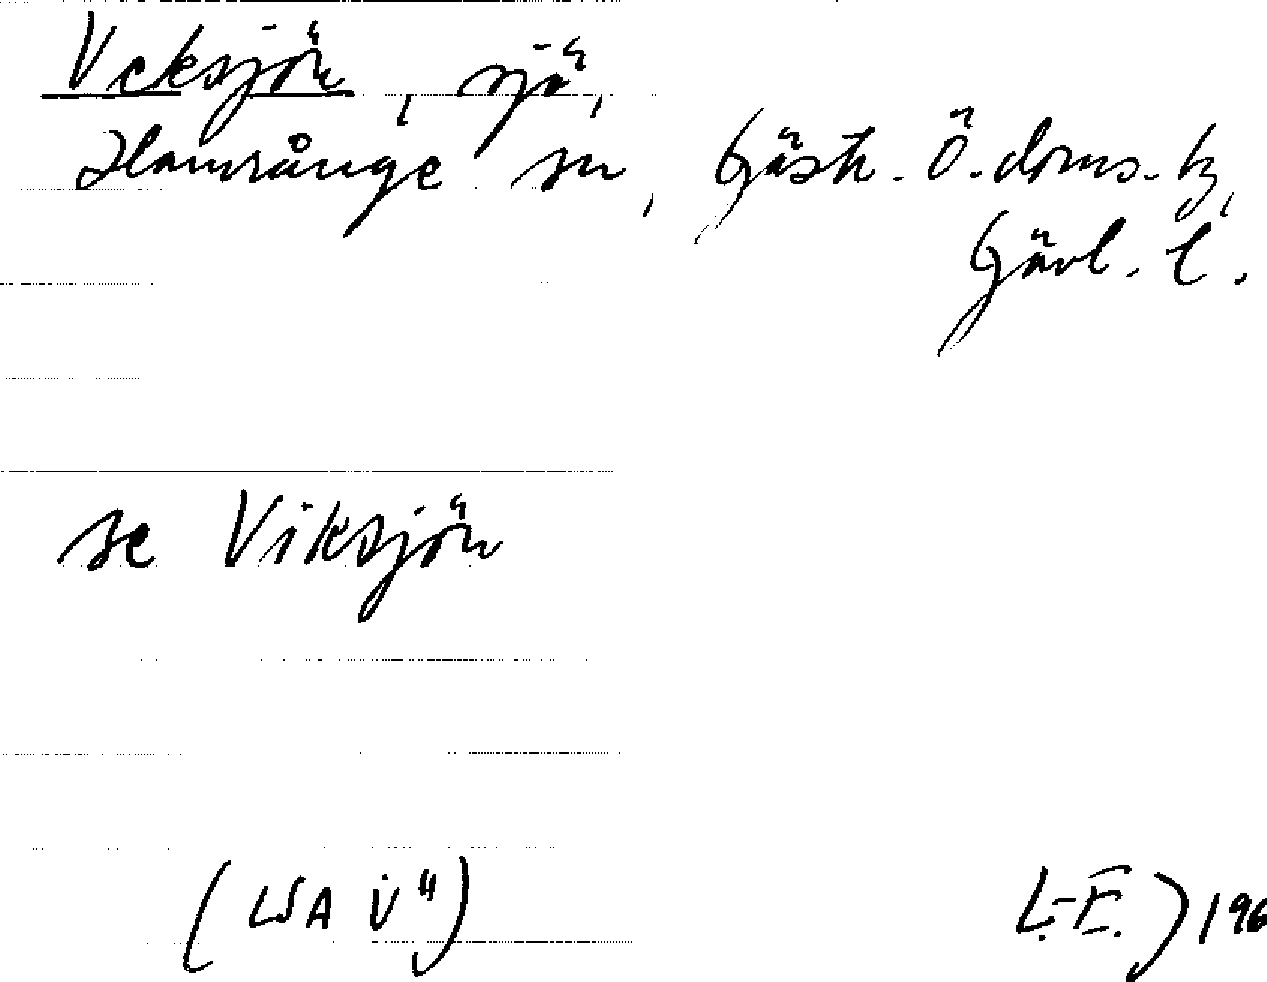 Veksjön, sjö,
Hamrånge sn, Gästr. Ö. doms. hd,
Gävl. l.
se Viksjön
(LSA V 4)
L.-E.) 196